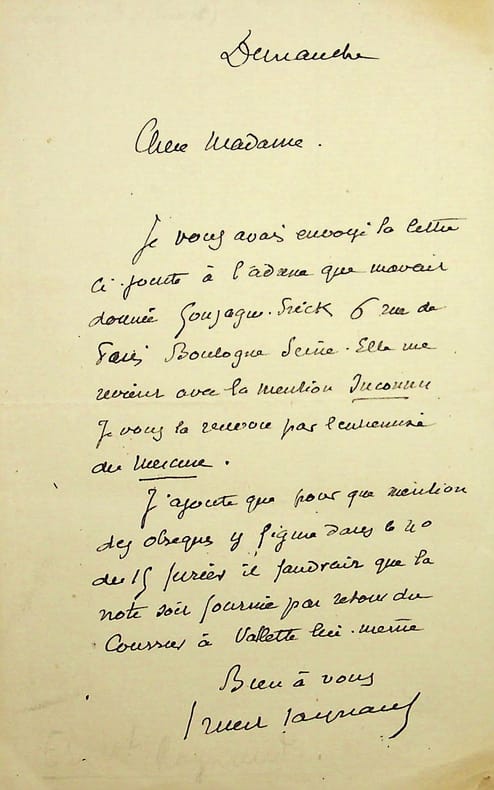 Dimanche
Chère Madame.
Je vous avais envoyé la lettre
ci-jointe à l'adresse que m'avait
donnée Gonzague-Frick 6 rue de
Paris Boulogne Seine. Elle me
revient avec la mention Inconnu
Je vous la renvoie par l'entremise
du Mercure.
J'ajoute que pour que mention
des obsèques y figure dans le no
du 15 février il faudrait que la
note soit fournie par retour du
Courrier à Vallette lui-même
Bien à vous
Ernest Raynaud
Ernest
Raynaud